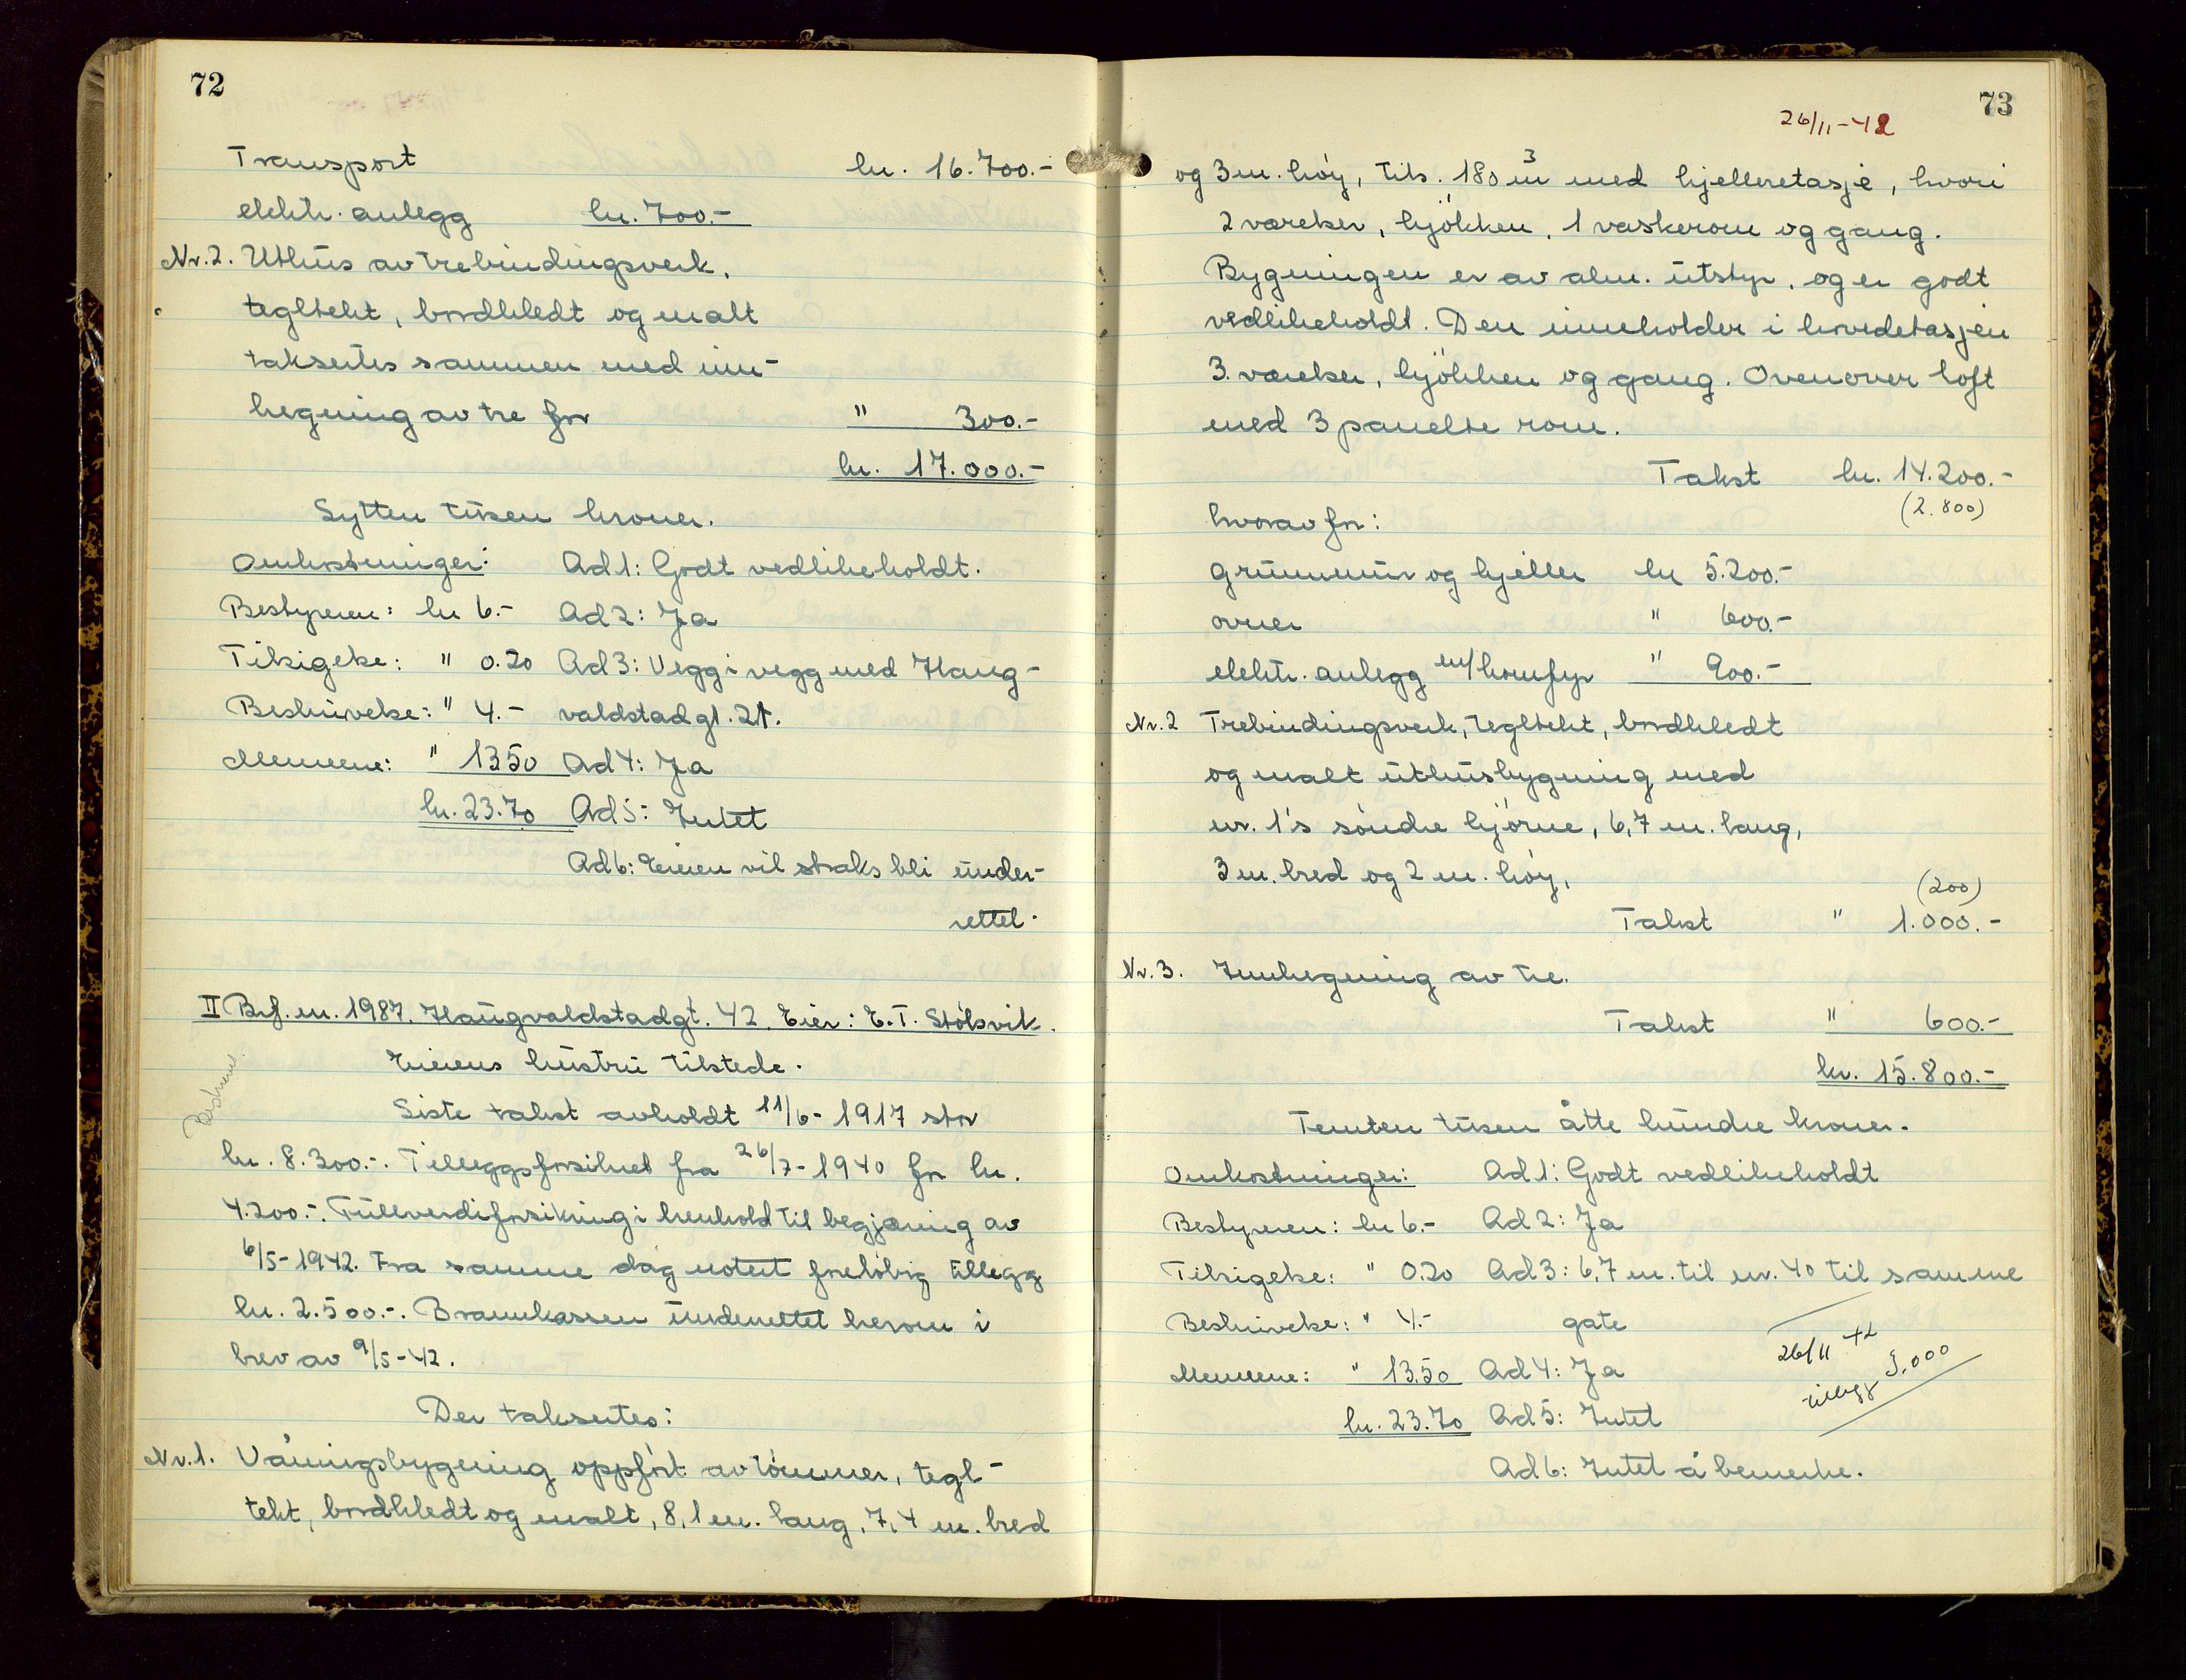 72
Transport kr. 16.700.-
elektr. anlegg kr. 700.-
Nr. 2. Uthus av trebindingsverk,
tegltekt, bordkledt og malt
takseres sammen med inn-
hegning av tre for " 300.-
kr. 17.000.-
Sytten tusen kroner.
Omkostninger: Ad 1: Godt vedlikeholdt.
Bestyreren: kr 6.- Ad 2: Ja
Tilsigelse: " 0.20 Ad 3: Vegg i vegg med Haug-
Beskrivelse: " 4.- valdstadgt. 21.
Mennene: " 13.50 Ad 4: Ja
kr. 23.70 Ad 5: Intet
Ad 6: Eieren vil straks bli under-
rettet.
II Brf. nr. 1987. Haugvaldstadgt. 42. Eier: E. T. Stølsvik.
Eierens hustru tilstede.
Siste takst avholdt 11/6-1917 stor
kr. 8.300.-. Tilleggsforsikret fra 26/7-1940 for kr.
4.200.-. Fullverdiforsikring i henhold til begjæring av
6/5-1942. Fra samme dag notert foreløbig tillegg
kr. 2.500.-. Brannkassen underrettet herom i
brev av 9/5-42.
Der takseres:
Nr. 1. Våningsbygning oppført av tømmer, tegl-
tekt, bordkledt og malt, 8,1 m. lang, 7,4 m. bred
73
26/11-42
og 3 m. høy, tils. 180 m³ med kjelleretasje, hvori
2 værelser, kjøkken, 1 vaskerom og gang.
Bygningen er av alm. utstyr, og er godt
vedlikeholdt. Den inneholder i hovedetasjen
3 værelser, kjøkken og gang. Ovenover loft
med 3 panelte rom.
Takst kr. 14.200.-
(2.800)
hvorav for:
grunnmur og kjeller kr 5.200.-
ovner " 600.-
elektr. anlegg m/komfyr " 900.-
Nr. 2 Trebindingsverk, tegltekt, bordkledt
og malt uthusbygning med
nr. 1's søndre hjørne, 6,7 m. lang,
3 m. bred og 2 m. høy,
(200)
Takst " 1.000.-
Nr. 3. Innhegning av tre.
Takst " 600.-
kr. 15.800.-
Femten tusen åtte hundre kroner.
Omkostninger: Ad 1: Godt vedlikeholdt
Bestyreren: kr 6.- Ad 2: Ja
Tilsigelse: " 0.20 Ad 3: 6,7 m. til nr. 40 til samme
Beskrivelse: " 4.- gate
Mennene: " 13.50 Ad 4: Ja
kr. 23.70 Ad 5: Intet
Ad 6: Intet å bemerke.
26/11 42
tillegg 3,000